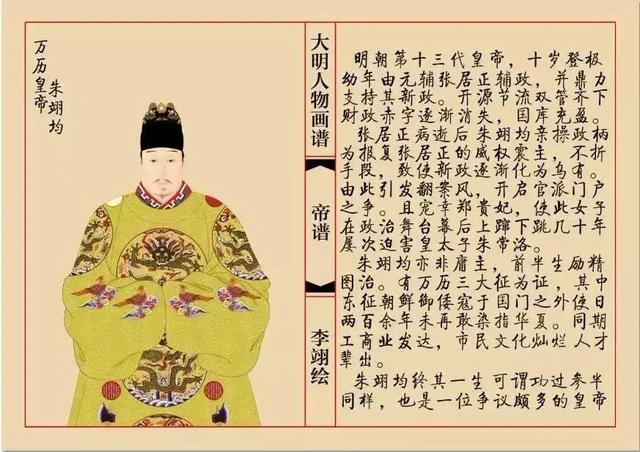 万历皇帝
朱翊均
大明人物画谱
帝谱
李翊绘
明朝第十三代皇帝，十岁登极
幼年由元辅张居正辅政，并鼎力
支持其新政。开源节流双管齐下
财政赤字逐渐消失，国库充盈。
张居正病逝后朱翊均亲操政柄
为报复张居正的威权震主，不折
手段，致使新政逐渐化为乌有。
由此引发翻案风，开启官派门户
之争。且宠幸郑贵妃，使此女子
在政治舞台幕后上蹿下跳几十年
屡次迫害皇太子朱常洛。
朱翊均亦非庸主，前半生励精
图治。有万历三大征为证，其中
东征朝鲜御倭寇于国门之外使日
两百余年未再敢染指华夏。同期
工商业发达，市民文化灿烂人才
辈出。
朱翊均终其一生可谓功过参半
同样，也是一位争议颇多的皇帝